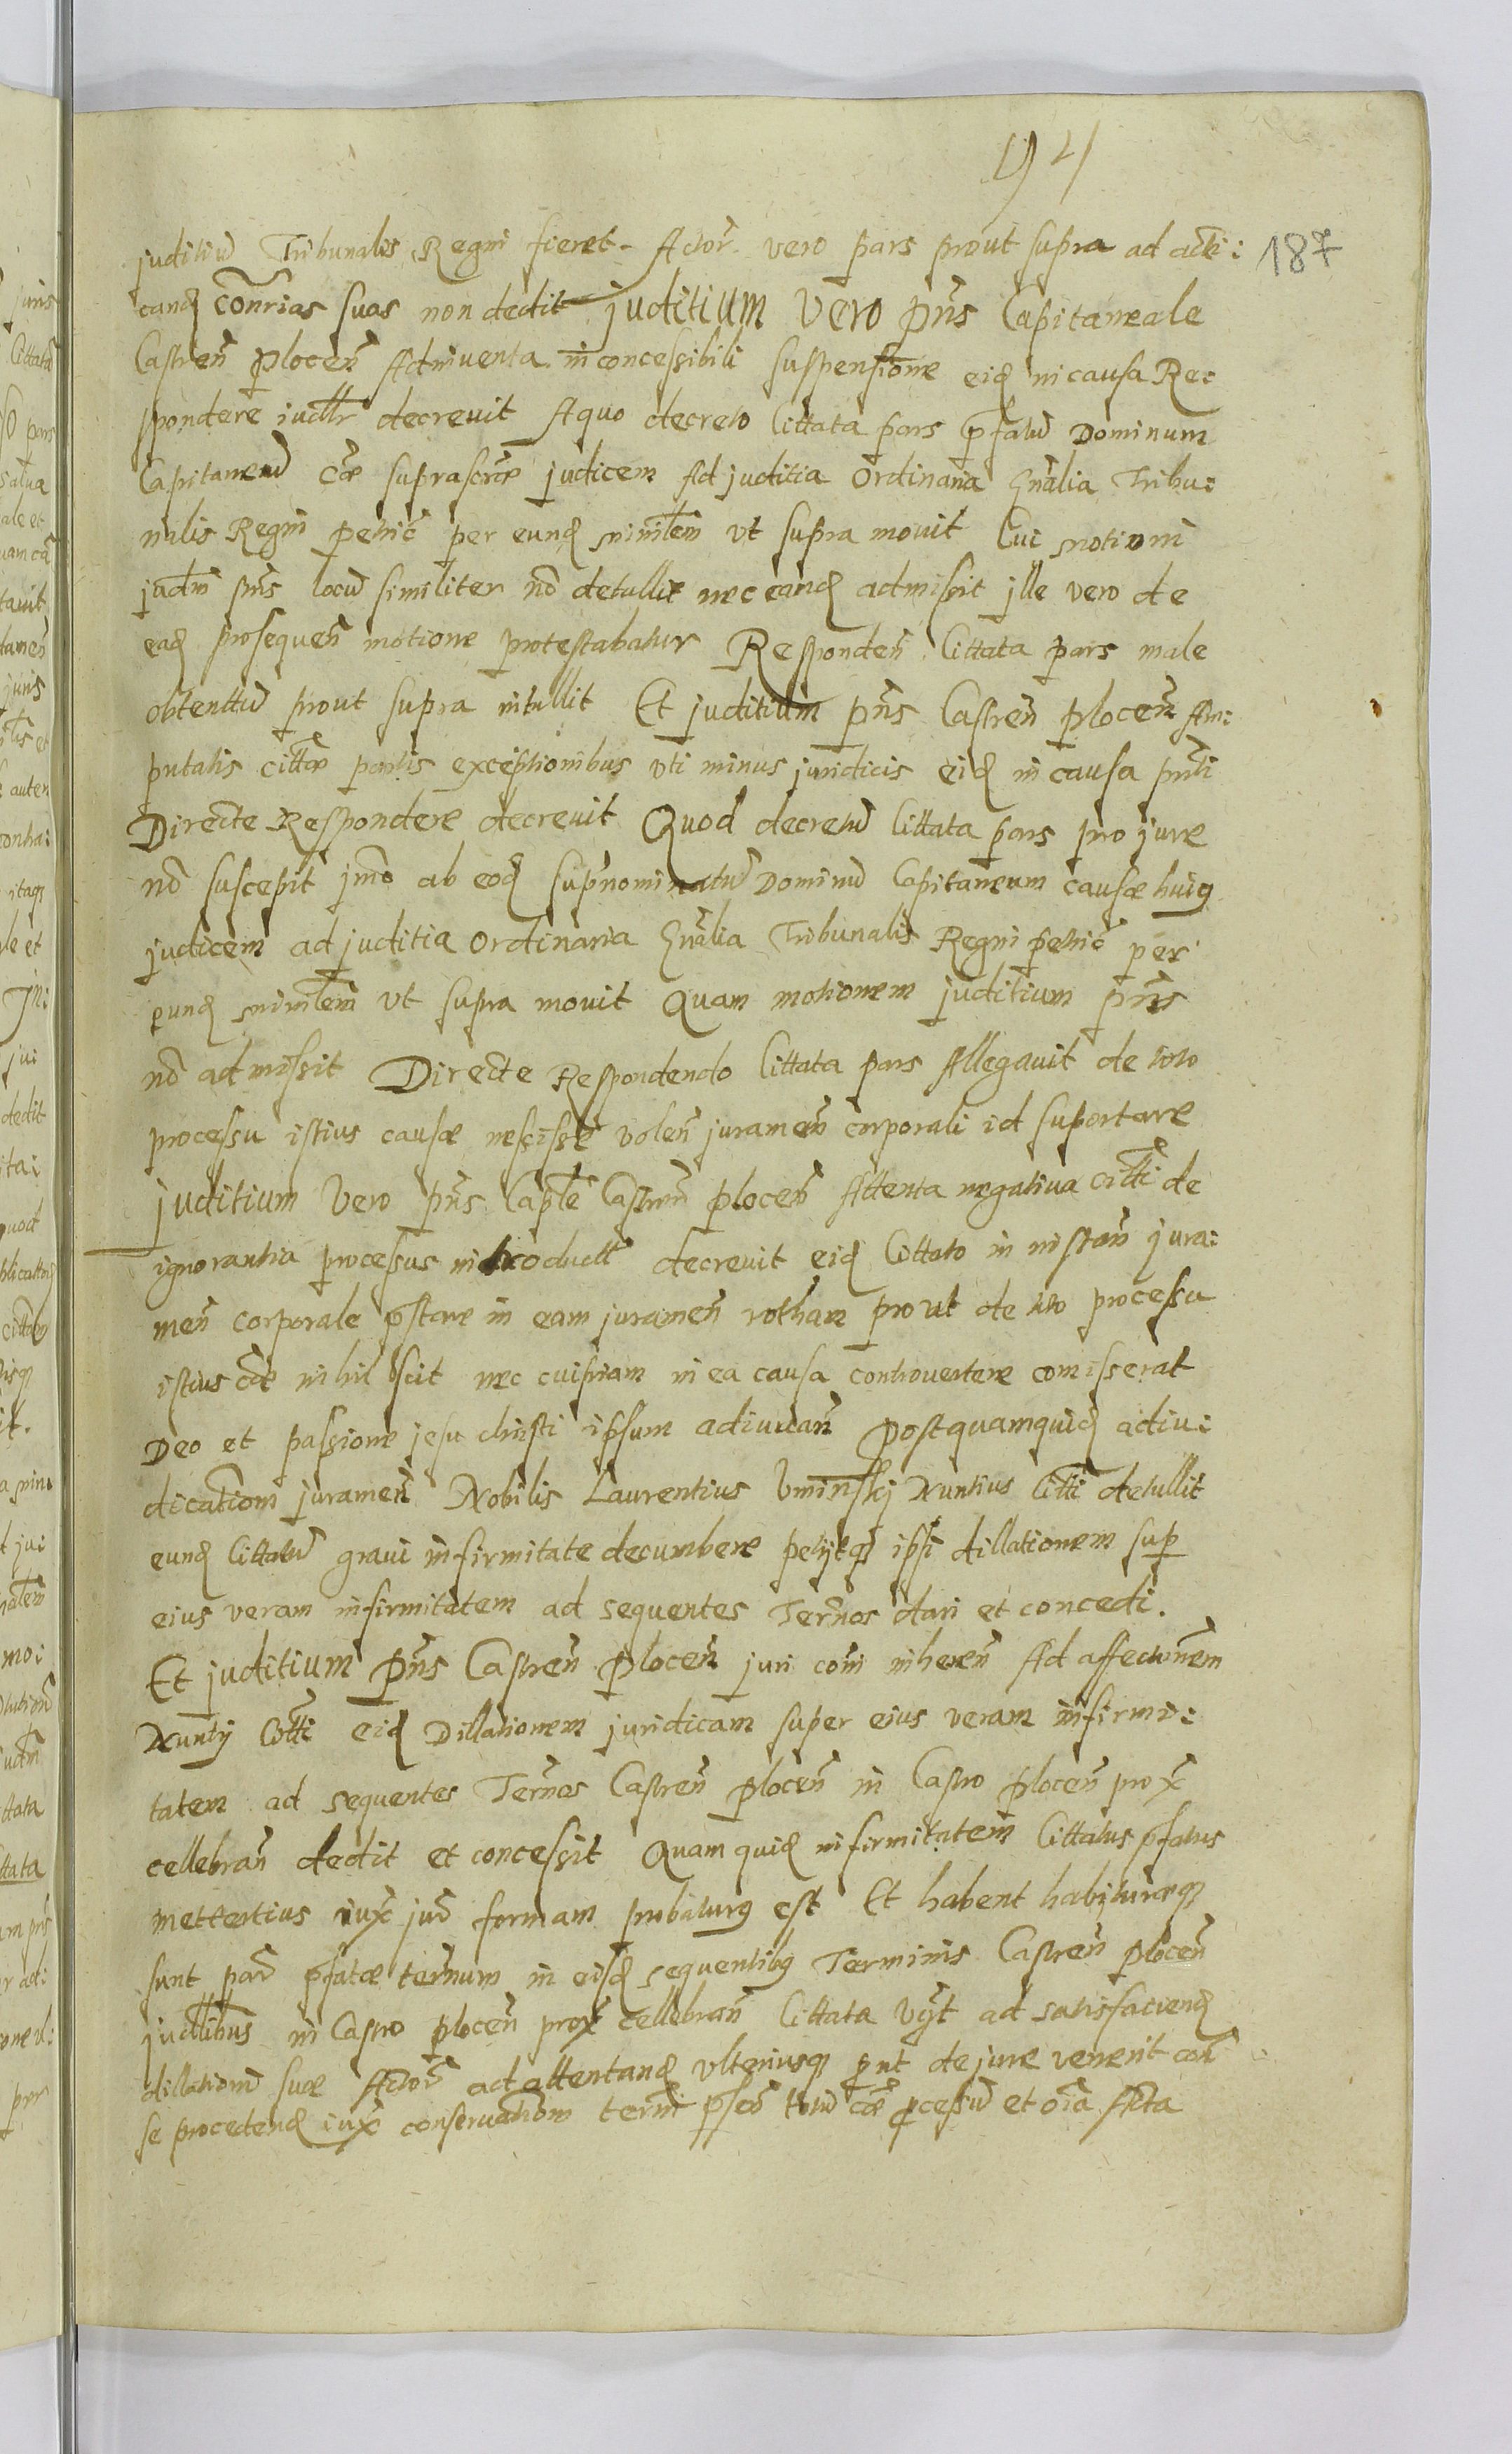 194
187
juditiũ Tribunalis Regni fieret Actor̃ vero pars prout supra ad acti:
cand̨ conr̃ias suas non dedit juditium vero pñs Capitaneale
Castreñ ploceñ Adinuenta in concessibili suspensione eid̨ in causa Re:
spondere iudlr̃ decreuit A quo decreto Cittata pars p̃fatũ Dominum
Capitaneũ cãe suprascr̃æ judicem Ad juditia Ordinaria Gñalia Tribu:
nalis Regni petric̃ per eund̨ ministem̃ vt supra mouit Cui motioni
judm̃ pñs locũ similiter nõ detullit nec eand̨ admisit jlle vero de
ead̨ prosequeñ motione protestabatur Respondeñ Cittata pars male
obtentũ prout supra intullit Et juditium pñs Castreñ ploceñ Am:
putatis citt̃æ partis exceptionibus vti minus juridicis eid̨ in causa pñti
Directe Respondere decreuit Quod decretũ Cittata pars pro jure
nõ suscepit jmo ab eod̨ supñominatũ Dominũ Capitaneum causæ huig
judicem ad juditia Ordinaria Gñalia Tribunalis Regni petric̃ per
eund̨ ministem̃ vt supra mouit Quam motionem juditium pñs
nõ admissit Directe Respondendo Cittata pars Allegauit de toto
processu istius causæ nescisse voleñ jurameñ corporali id suportare
juditium vero pñs Capl̃e Castreñ ploceñ Attenta negatiua citt̃i de
ignorantia processus introduct̃ decreuit eid̨ Cittato in instañ jura:
meñ corporale p̃stare in eam jurameñ rotham prout de toto processu
istius cãæ nihil scit nec cuipiam in ea causa controuertere comisserat
Deo et passione jesu christi ipsum adiuuañ Postquamquid̨ adiu:
dicationẽ jurameñ Nobilis Laurentius Vminskj Nuntius Citt̃i detullit
eund̨ Cittatũ graui infirmitate decumbere petijtq̨ ipsi dillationem sup
eius veram infirmitatem ad sequentes Ter̃nos dari et concedi.
Et juditium pñs Castreñ ploceñ juri com̃i inhereñ Ad affectionẽm
Nuntij Citt̃i eid̨ Dillationem juridicam super eius veram infirmi:
tatem ad sequentes Ter̃nos Castreñ ploceñ in Castro ploceñ prox̃
cellebrañ dedit et concessit Quam quid̨ infirmitatem Cittatus p̃fatus
mettertius iux̃ jur̃ formam probaturg est Et habent habituræq̨
sunt par̃ p̃fatæ ter̃num in eisd̨ sequentibg Terminis Castreñ ploceñ
judlibus in Castro ploceñ prox̃ cellebrañ Cittata vỹt ad satisfaciend̨
dillationi suæ Actor̃ ad attentand̨ vlteriusq̨ p̃ut de jure venerit coñ
se procedend̨ iux̃ conseruationẽ term̃i p̃seõ totũ cãe p̃cessũ et oĩa Acta